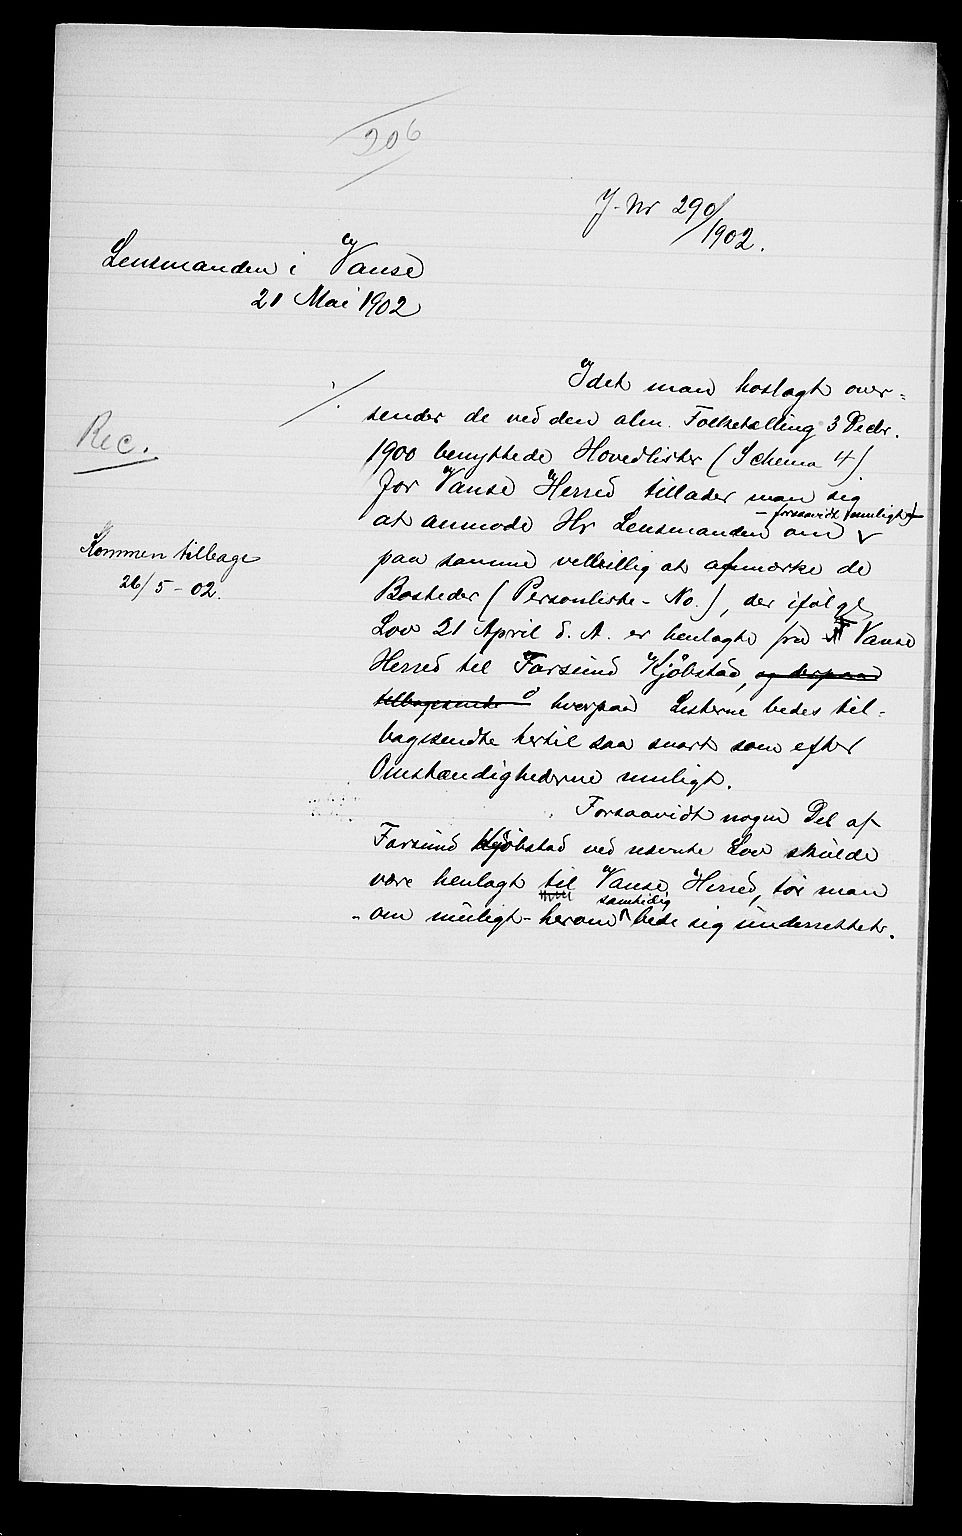 206
J. Nr 290/1902.
Lensmanden i Vanse
21 Mai 1902
./.
Idet man hoslagt over=
sender de ved den alm. Folketælling 3 Decbr.
Rec.
1900 benyttede Hovedlister (Schema 4)
for Vanse Herred tillader man sig
- forsaavidt muligt -
at anmode Hr Lensmanden om
Kommen tilbage
26/5-02.
paa samme velvillig at afmærke de
Bosteder (Personliste-No.), der ifølge
Lov 21 April d. A. er henlagte fra Vanse
Herred til Farsund Kjøbstad, og derpaa
tilbagesende hvorpaa Listerne bedes til=
bagesendte hertil saa snart som efter
Omstændighederne muligt.
Forsaavidt nogen Del af
Farsund Kjøbstad ved nævnte Lov skulde
være henlagt til Vanse Herred, tør man
samtidig
- om muligt - herom bede sig underrettet.